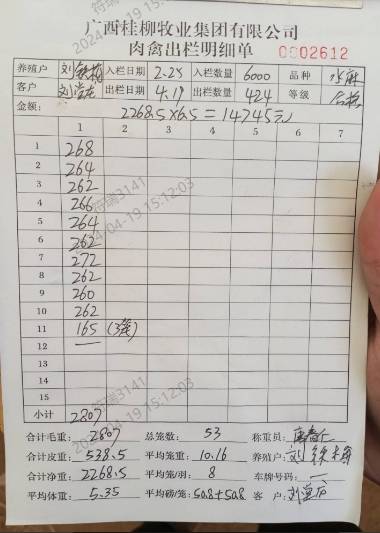 广西桂柳牧业集团有限公司
肉禽出栏明细单 0002612
养殖户 入栏日期 2.25 入栏数量 6000 品种
客户 出栏日期 4.19 出栏数量 424 等级 合格
金额: 2268.5×6.5=14745元
1 2 3 4 5 6 7
1 268
2 264
3 262
4 266
5 264
6 262
7 272
8 262
9 260
10 262
11 165 (3笼)
12 —
13
14
15
小计 2807
合计毛重: 2807 总笼数: 53 称重员:
合计皮重: 538.5 平均笼重: 10.16 养殖户:
合计净重: 2268.5 平均笼/羽: 8 车牌号码: —
平均体重: 5.35 平均磅/笼: 50.8+50.8 客 户:
符瑞3141
2024-04-19 15:12:03
符瑞3141
2024-04-19 15:12:03
符瑞3141
2024-04-19 15:12:03